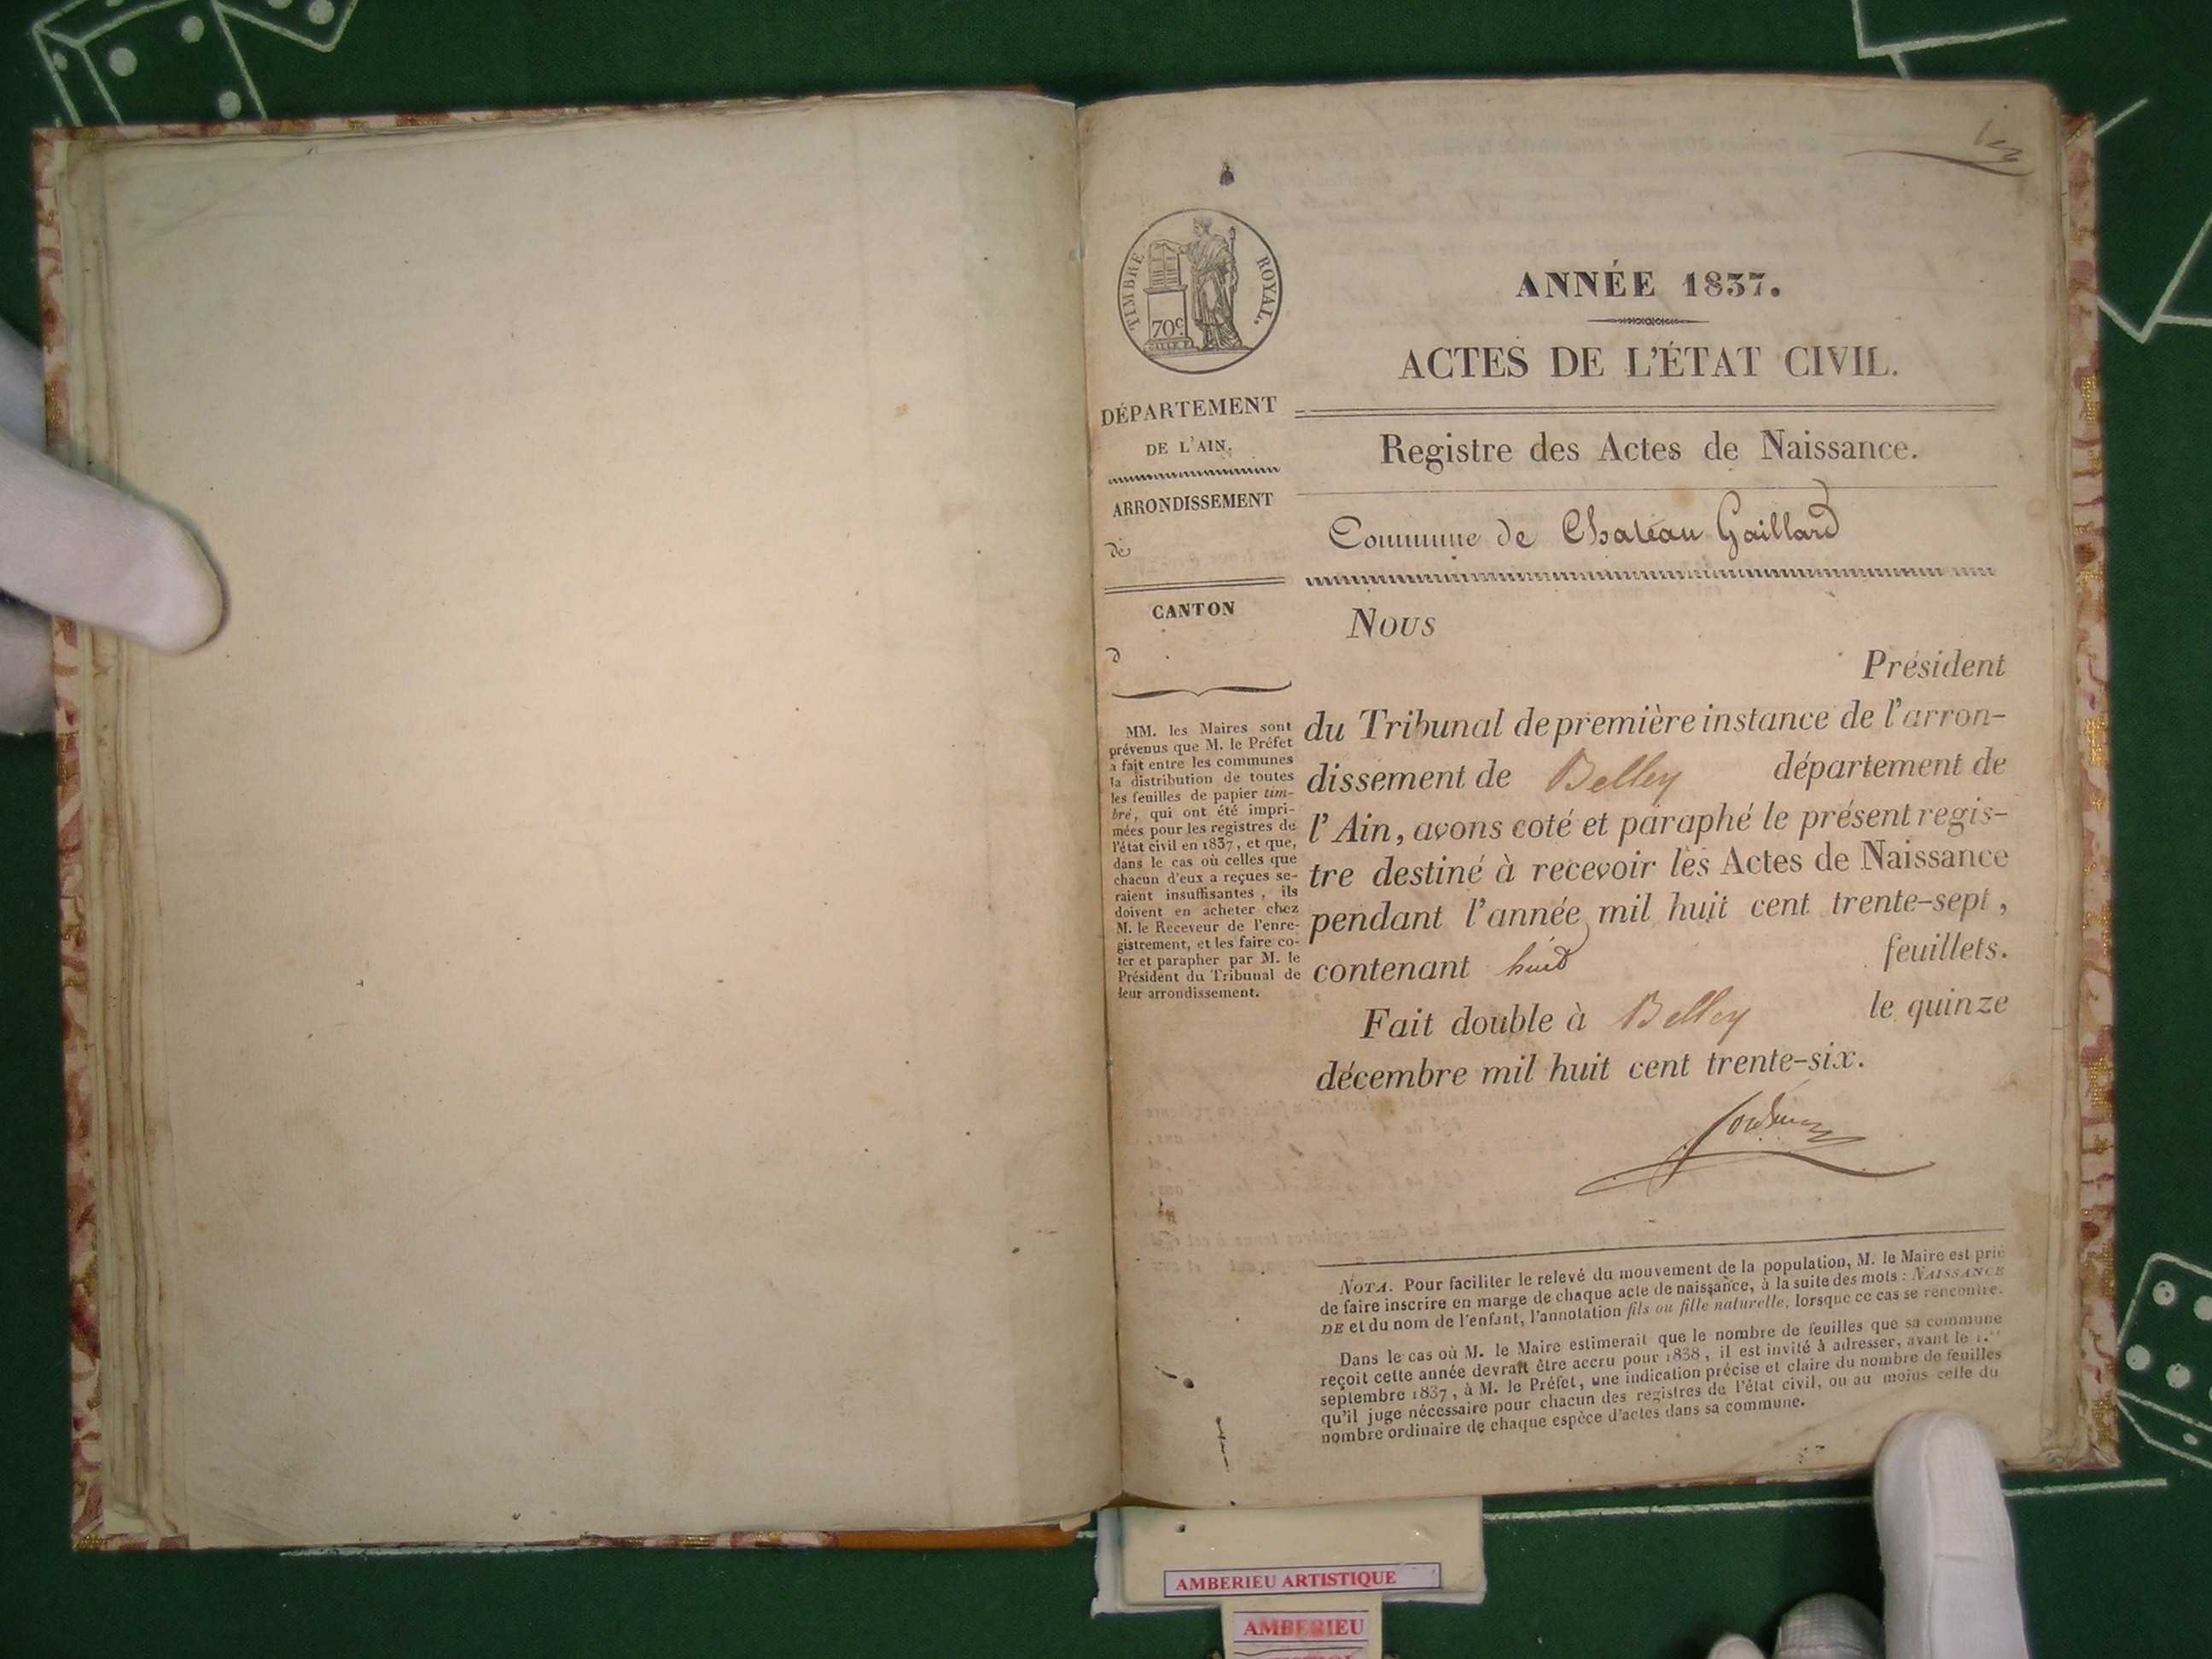 TIMBRE ROYAL.
70c.
ANNÉE 1837.
ACTES DE L'ÉTAT CIVIL.
DÉPARTEMENT
DE L'AIN.
ARRONDISSEMENT
de
CANTON
d
MM. les Maires sont
prévenus que M. le Préfet
a fait entre les communes
la distribution de toutes
les feuilles de papier tim-
bré, qui ont été impri-
mées pour les registres de
l'état civil en 1837, et que,
dans le cas où celles que
chacun d'eux a reçues se-
raient insuffisantes, ils
doivent en acheter chez
M. le Receveur de l'enre-
gistrement, et les faire co-
ter et parapher par M. le
Président du Tribunal de
leur arrondissement.
Registre des Actes de Naissance.
Commune de Chateau Gaillard
Nous
Président
du Tribunal de première instance de l'arron-
dissement de Belley département de
l'Ain, avons coté et paraphé le présent regis-
tre destiné à recevoir les Actes de Naissance
pendant l'année mil huit cent trente-sept,
contenant huit feuillets.
Fait double à Belley le quinze
décembre mil huit cent trente-six.
NOTA. Pour faciliter le relevé du mouvement de la population, M. le Maire est prié
de faire inscrire en marge de chaque acte de naissance, à la suite des mots : NAISSANCE
DE et du nom de l'enfant, l'annotation fils ou fille naturelle, lorsque ce cas se rencontre.
Dans le cas où M. le Maire estimerait que le nombre de feuilles que sa commune
reçoit cette année devrait être accru pour 1838, il est invité à adresser, avant le 1.er
septembre 1837, à M. le Préfet, une indication précise et claire du nombre de feuilles
qu'il juge nécessaire pour chacun des registres de l'état civil, ou au moins celle du
nombre ordinaire de chaque espèce d'actes dans sa commune.
AMBERIEU ARTISTIQUE
AMBERIEU